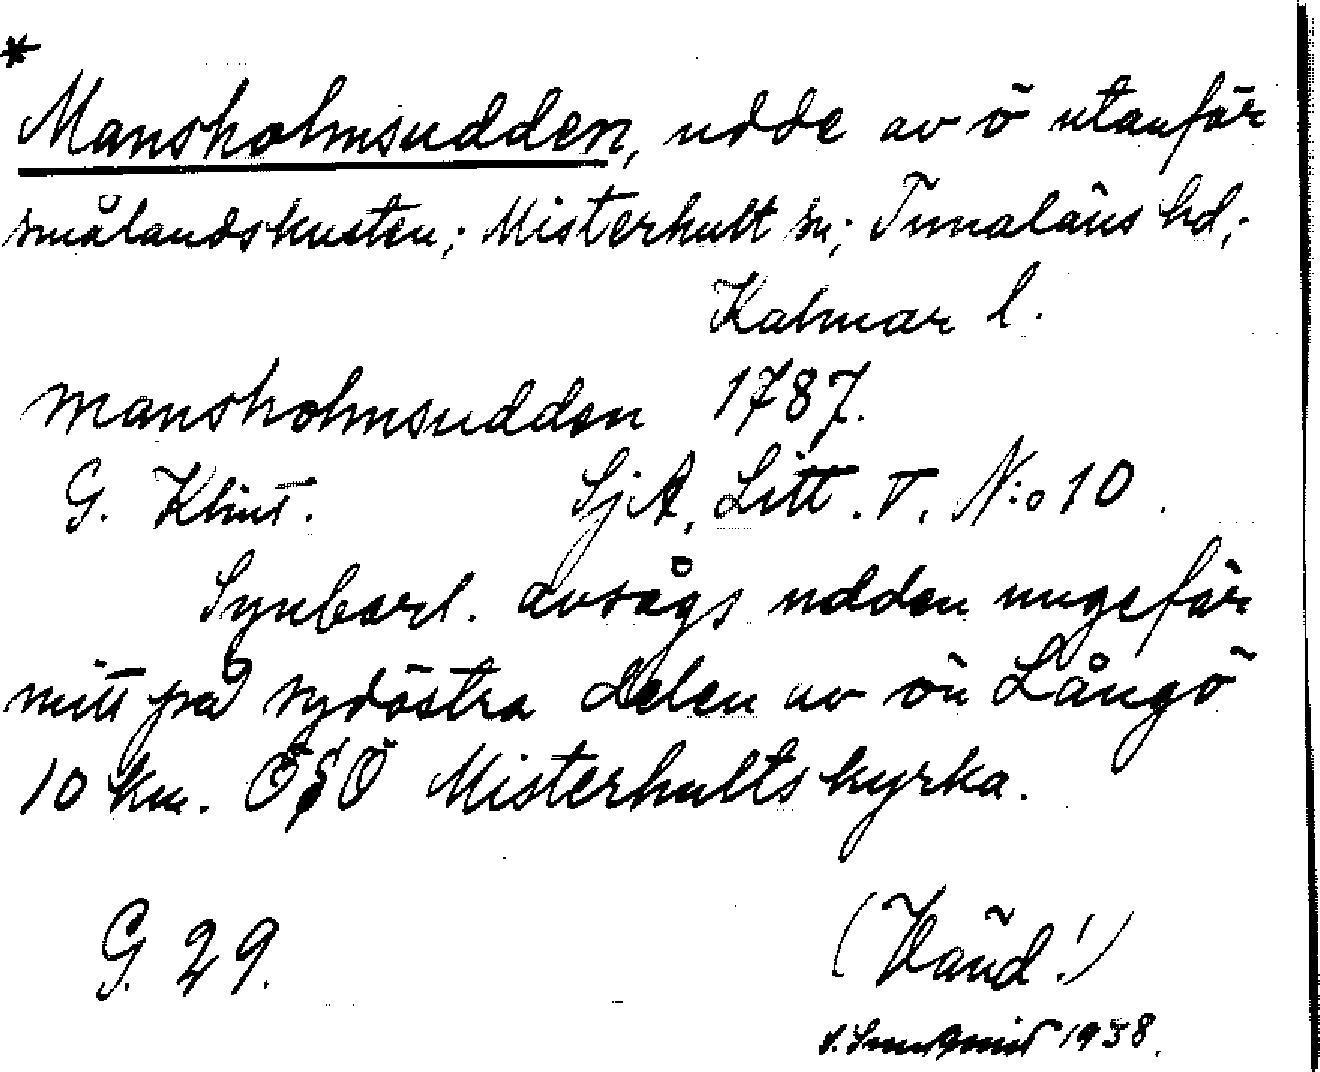 *
Mansholmsudden, udde av ö utanför
smålandskusten; Misterhult sn; Tunaläns hd;
Kalmar l.
Mansholmsudden 1787.
G. Klint. SjA, Litt. T. N:o 10.
Synbarl. avsågs udden ungefär
mitt på sydöstra delen av ön Långö
10 km. ÖSÖ Misterhults kyrka.
G. 29. (Vänd!)
1938.